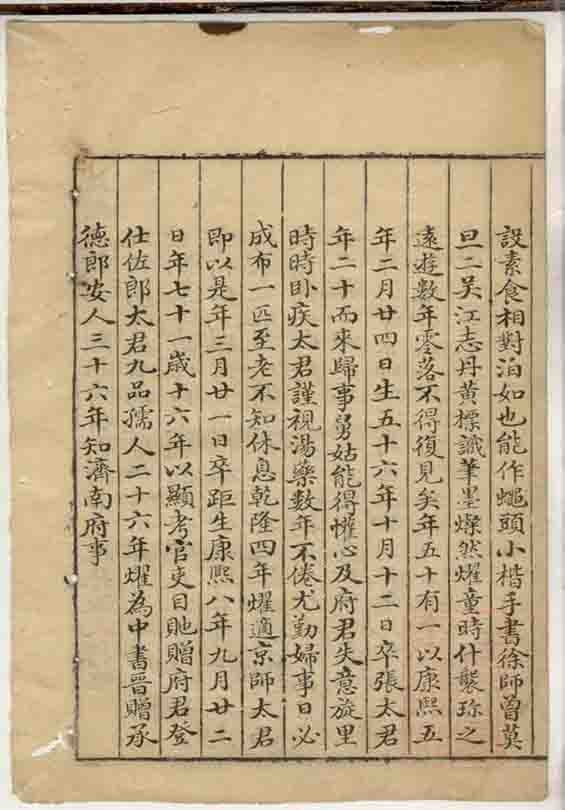 設素食相對泊如也能作蠅頭小楷手書徐師曾莫
旦二吴江志丹黃標識筆墨燦然燿童時什襲珎之
遠遊數年零落不得復見矣年五十有一以康熙五
年二月廿四日生五十六年十月十二日卒張太君
年二十而來歸事舅姑能得懽心及府君失意旋里
時時卧疾太君謹視湯藥數年不倦尤勤婦事日必
成布一匹至老不知休息乾隆四年燿適京師太君
即以是年三月廿一日卒距生康熙八年九月廿二
日年七十一歲十六年以顯考官吏目貤贈府君登
仕佐郎太君九品孺人二十六年燿為中書晉贈承
德郎安人三十六年知濟南府事